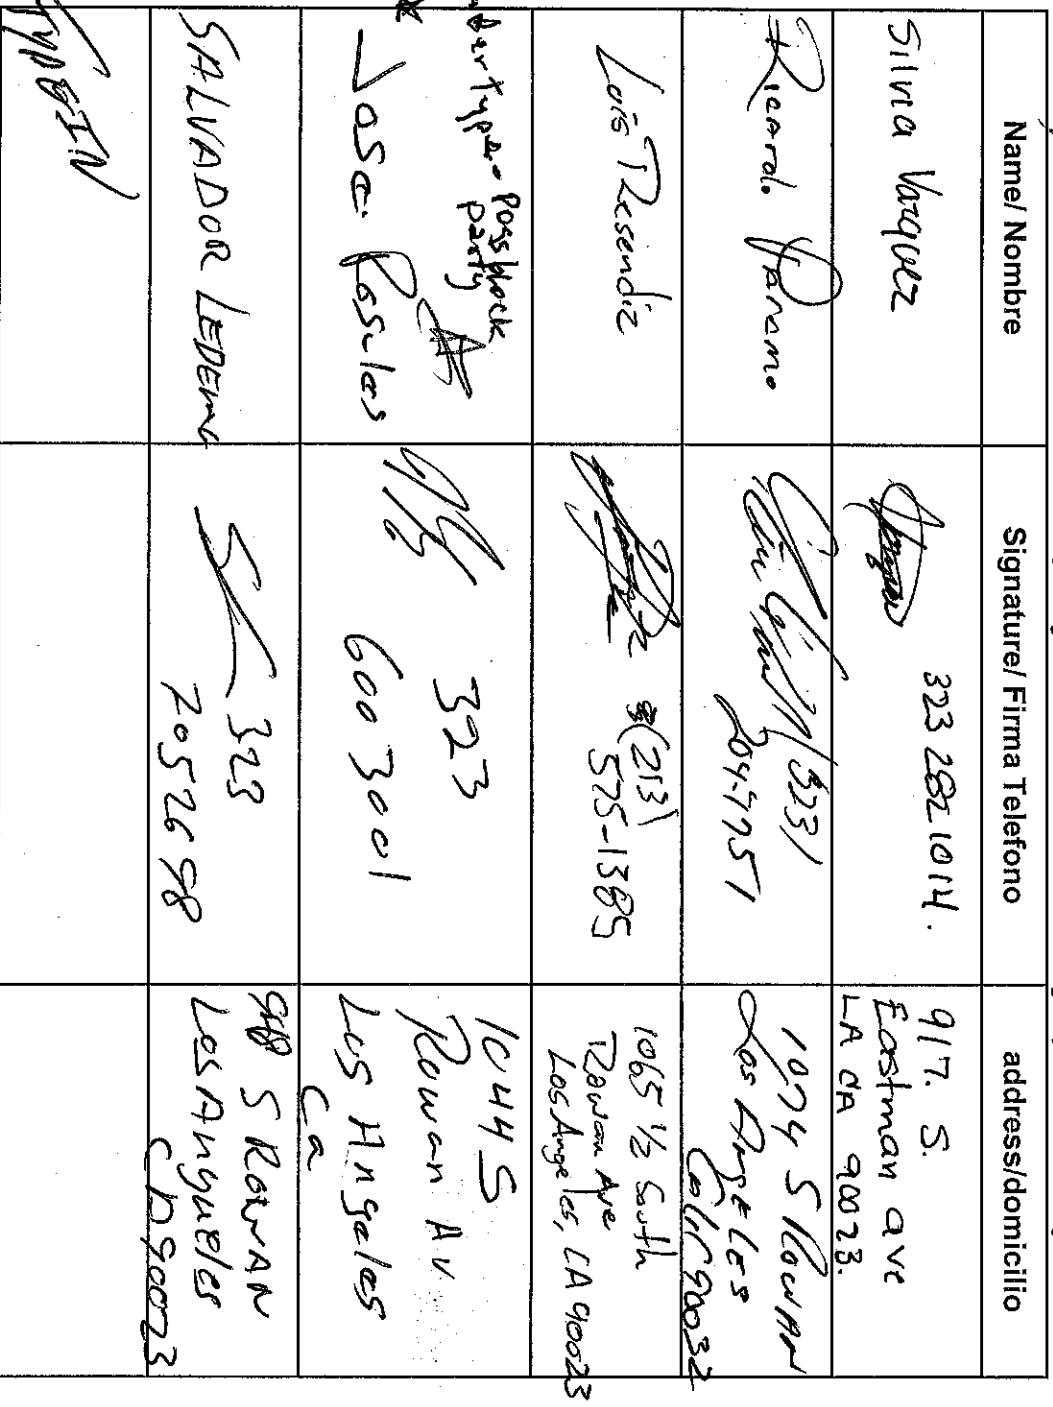 Name/ Nombre
Signature/ Firma Telefono
adress/domicilio
Silvia Vazquez
323 282 1014.
917. S.
Eastman ave
LA CA 90023.
Ricardo Paramo
(323)
204-4751
1074 S Rowan
Los Angeles
Calif 90032
Luis Resendiz
(213)
575-1385
1065 1/2 South
Rowan Ave
Los Angeles, CA 90023
Poss block
party
Jose Rosales
323
600 3001
1044 S
Rowan Av.
Los Angeles
Ca
SALVADOR LEDEMA
323
7052698
S ROWAN
Los Angueles
CA 90023
TYPE IN